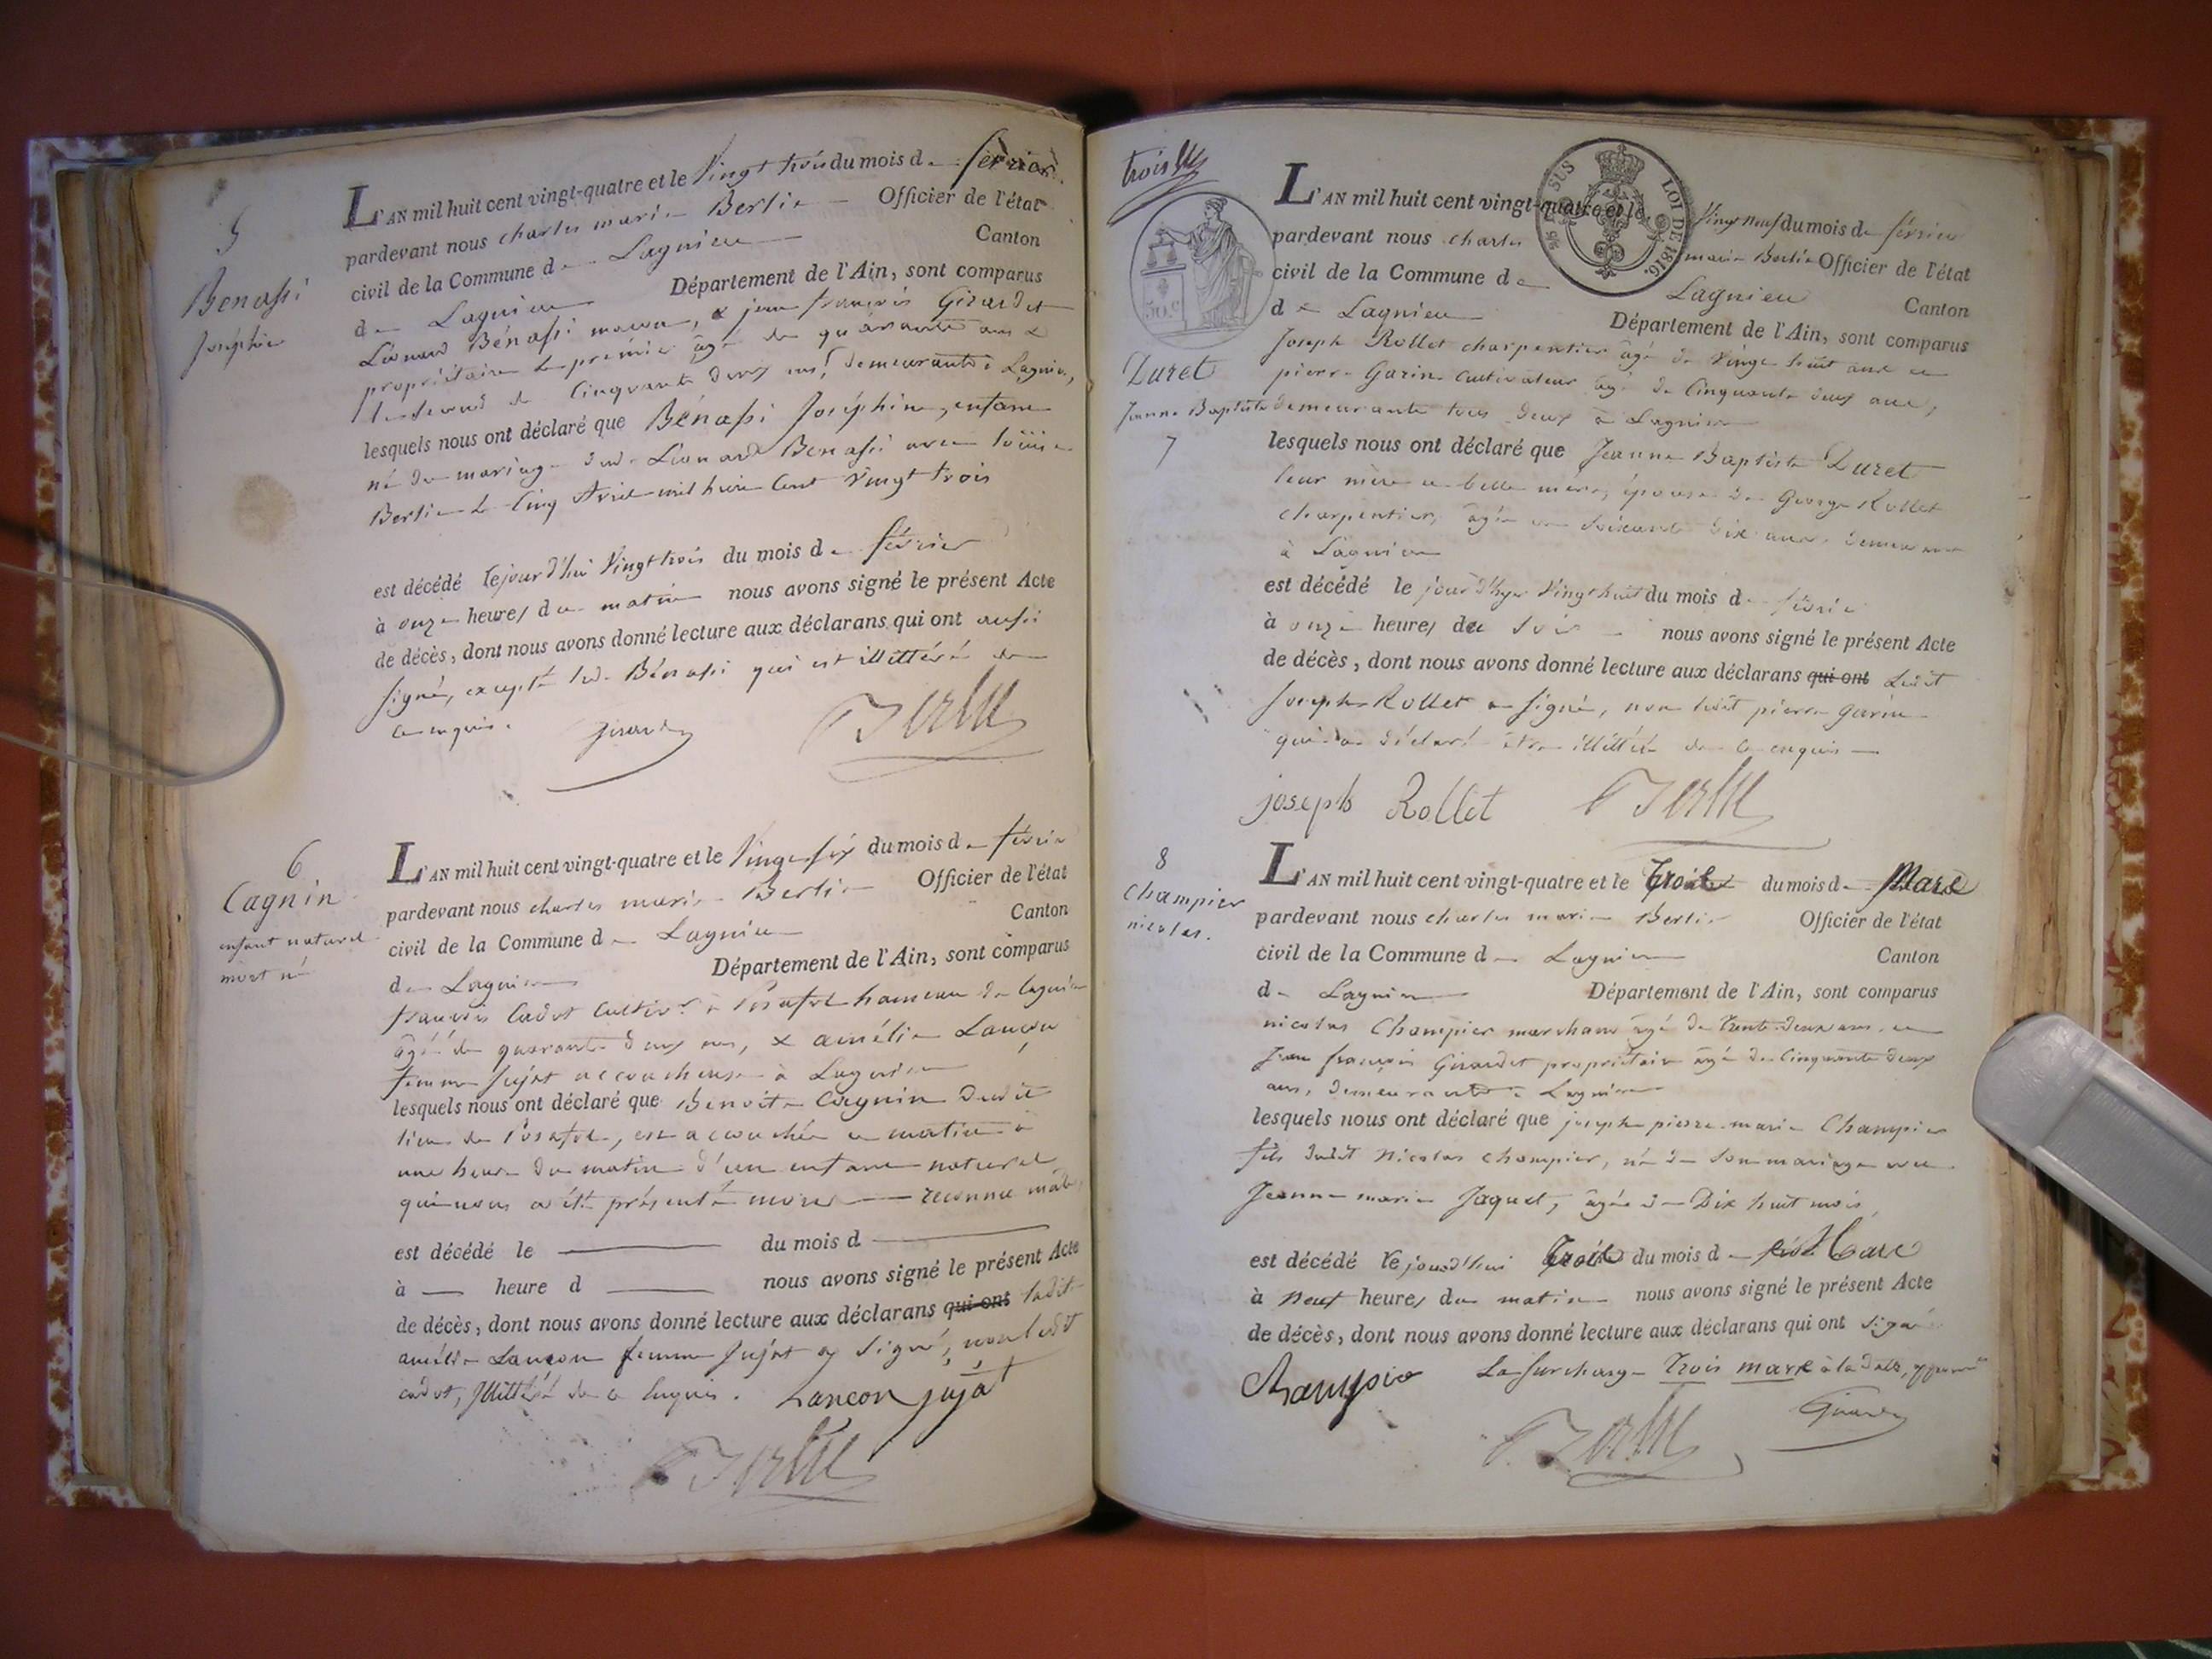 5
Benassi
Joséphine
L'AN mil huit cent vingt-quatre et le Vingt trois du mois de février
pardevant nous charles marie Berlie Officier de l'état
civil de la Commune de Lagnieu Canton
de Lagnieu Département de l'Ain, sont comparus
Léonard Bénassi maçon, & jean françois Girardet
propriétaire le premier âgé de quarante ans &
le second de Cinquante deux ans, demeurants à Lagnieu,
lesquels nous ont déclaré que Bénassi Joséphine, enfant
né du mariage dud. Léonard Benassi avec
Berlie le Cinq Avril mil huit Cent Vingt trois
est décédé lejourd'hui Vingt trois du mois de février
à onze heures du matin nous avons signé le présent Acte
de décès, dont nous avons donné lecture aux déclarans qui ont aussi
signé, excepté led. Bénassi qui est illittéré de
ce enquis.
6
Cagnin
enfant naturel
mort né
L'AN mil huit cent vingt-quatre et le Vingt-six du mois de février
pardevant nous charles marie Berlie Officier de l'état
civil de la Commune de Lagnieu Canton
de Lagnieu Département de l'Ain, sont comparus
françois Cadot Cultivr. à Posafol hameau de lagnieu
âgé de quarante deux ans, & amélie Lançon
femme Jujat accoucheuse à Lagnieu
lesquels nous ont déclaré que Benoite Cagnin dudit
lieu de Posafol, est accouchée ce matin à
une heure du matin d'un enfant naturel
qui nous a été présenté mort reconnu mâle
est décédé le du mois d
à heure d nous avons signé le présent Acte
de décès, dont nous avons donné lecture aux déclarans qui ont ladite
amélie Lançon femme Jujat a signé, non ledit
cadot, Illittéré de ce Enquis. Lancon jujat
trois
30.c
SUS LOI DE 1816.
Duret
Jeanne Baptiste
7
L'AN mil huit cent vingt-quatre et le Vingt neuf du mois de février
pardevant nous charles marie Berlie Officier de l'état
civil de la Commune de Lagnieu Canton
de Lagnieu Département de l'Ain, sont comparus
Joseph Rollet charpentier âgé de Vingt huit ans et
pierre Garin Cultivateur âgé de Cinquante deux ans,
demeurants tous deux à Lagnieu
lesquels nous ont déclaré que Jeanne Baptiste Duret
leur mère et belle mère, épouse de George Rollet
charpentier, âgée de soixante dix ans, demeurant
à Lagnieu
est décédé le jour d'hyer Vingt huit du mois de février
à onze heures du soir nous avons signé le présent Acte
de décès, dont nous avons donné lecture aux déclarans qui ont Ledit
Joseph Rollet a signé, non ledit pierre Garin
qui a déclaré être illittéré de ce enquis
joseph Rollet
8
Champier
nicolas.
L'AN mil huit cent vingt-quatre et le Trois du mois de Mars
pardevant nous charles marie Berlie Officier de l'état
civil de la Commune de Lagnieu Canton
de Lagnieu Département de l'Ain, sont comparus
nicolas Champier marchand âgé de Trente-deux ans, et
Jean françois Girardet propriétaire âgé de Cinquante deux
ans, demeurants à Lagnieu
lesquels nous ont déclaré que joseph pierre marie Champier
fils dudit Nicolas Champier, né de son mariage avec
Jeanne marie Jaquet, âgée de Dix huit mois,
est décédé lejourd'hui Trois du mois de Mars
à Neuf heures du matin nous avons signé le présent Acte
de décès, dont nous avons donné lecture aux déclarans qui ont signé
Champier La surcharge Trois mars à la date, approuvée